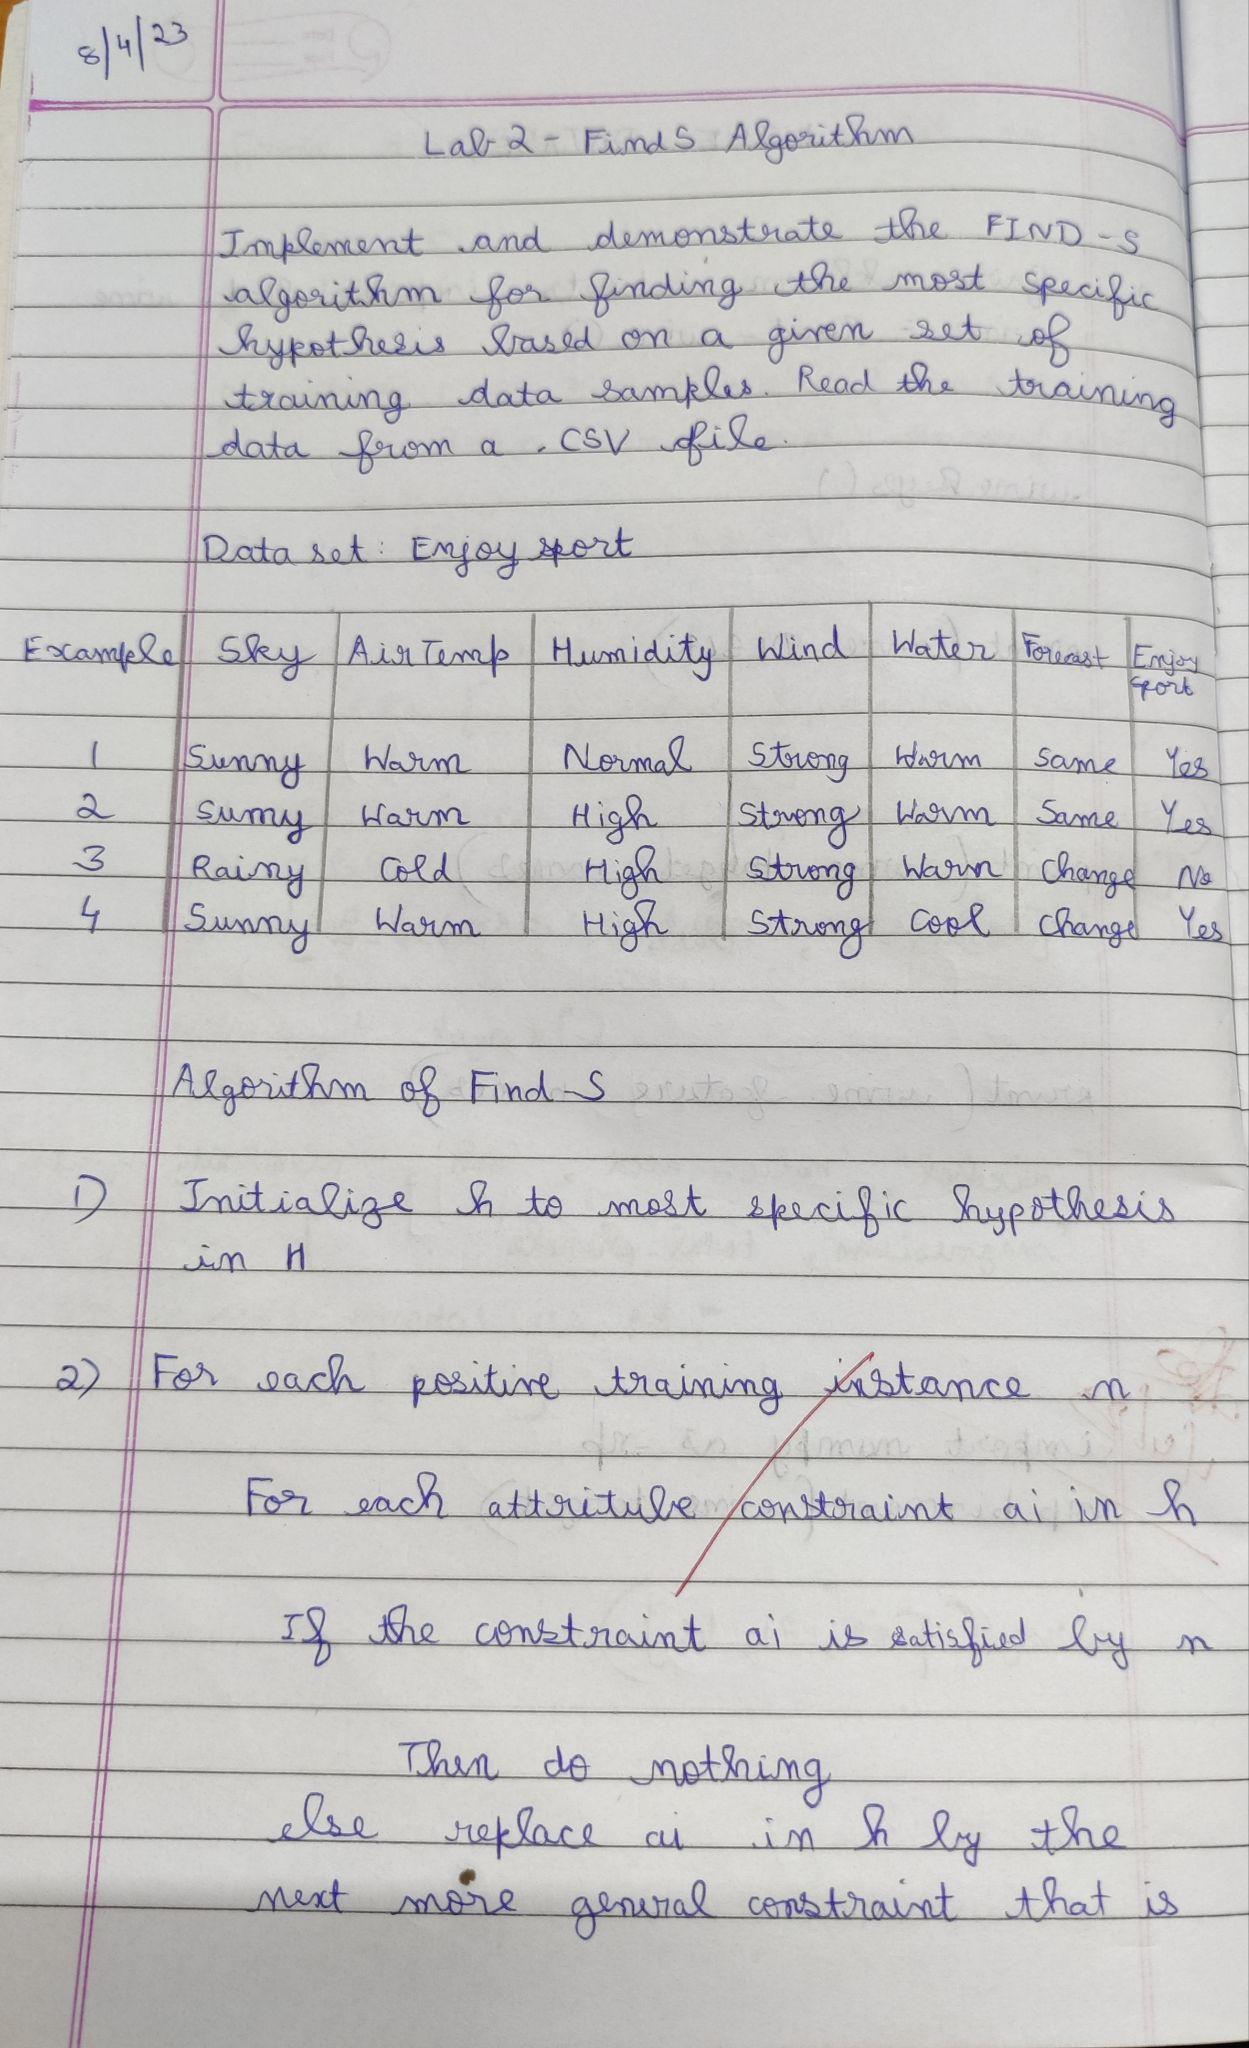 8/4/23
Lab 2 - Find S Algorithm
Implement and demonstrate the FIND-S
algorithm for finding the most specific
hypothesis based on a given set of
training data samples. Read the training
data from a .CSV file.
Data set: Enjoy sport
Example Sky AirTemp Humidity Wind Water Forecast Enjoy sport
1 Sunny Warm Normal Strong Warm Same Yes
2 Sumy Warm High Strong Warm Same Yes
3 Rainy Cold High Strong Warm Change No
4 Sunny Warm High Strong Cool Change Yes
Algorithm of Find-S
1) Initialize h to most specific hypothesis
in H
2) For each positive training instance n
For each attritube constraint ai in h
If the constraint ai is satisfied by n
Then do nothing
else replace ai in h by the
next more general constraint that is